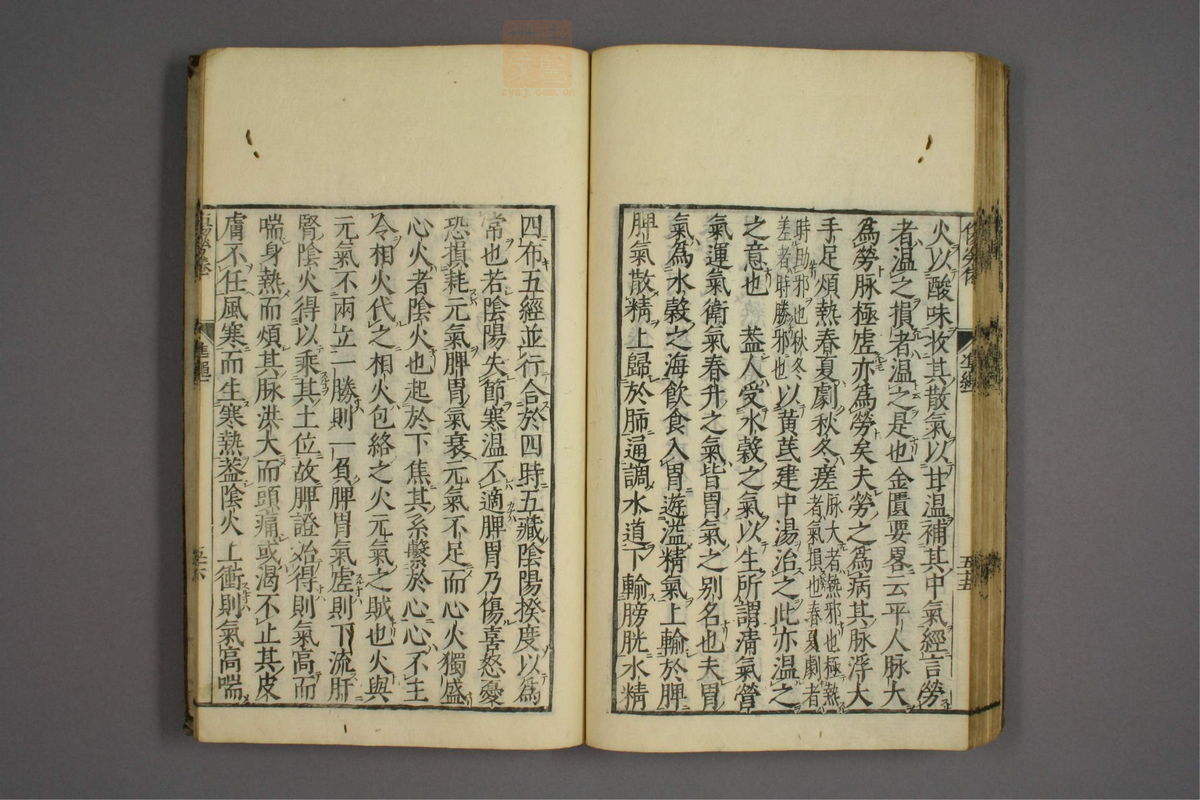 火以酸味收其散氣以甘溫補其中氣經言勞
者溫之損者溫之是也金匱要畧云平人脉大
爲勞脉極虛亦爲勞矣夫勞之爲病其脉浮大
手足煩熱春夏劇秋冬瘥脉大者熱邪也極熱者氣損也春夏劇者
時助邪也秋冬差者時勝邪也以黃芪建中湯治之此亦溫之
之意也 葢人受水穀之氣以生所謂清氣營
氣運氣衛氣春升之氣皆胃氣之别名也夫胃
氣爲水穀之海飲食入胃遊溢精氣上輸於脾
脾氣散精上歸於肺通調水道下輸膀胱水精
四布五經並行合於四時五藏陰陽揆度以爲
常也若陰陽失節寒溫不適脾胃乃傷喜怒憂
恐損耗元氣脾胃氣衰元氣不足而心火獨盛
心火者陰火也起於下焦其系繫於心心不主
令相火代之相火包絡之火元氣之賊也火與
元氣不兩立一勝則一負脾胃氣虛則下流肝
腎陰火得以乘其土位故脾證始得則氣高而
喘身熱而煩其脉洪大而頭痛或渴不止其皮
膚不任風寒而生寒熱葢陰火上衝則氣高喘
準繩一
五十五
準繩一
五十六
zysj.com.cn